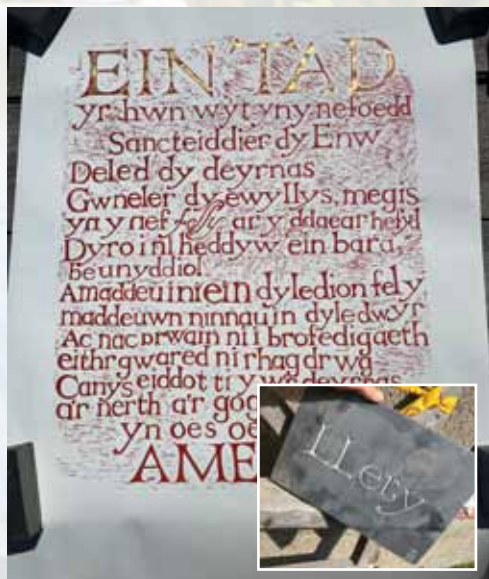 EIN TAD
yr hwn wyt yn y nefoedd
Sancteiddier dy Enw
Deled dy deyrnas
Gwneler dy ewyllys, megis
yn y nef felly ar y ddaear hefyd
Dyro i ni heddyw ein bara,
beunyddiol
A maddeu i ni ein dyledion fel y
maddeuwn ninnau i'n dyledwyr
Ac nac arwain ni i brofedigaeth
eithr gwared ni rhag drwg
Canys eiddot ti yw deyrnas
a'r nerth a'r gog
yn oes oe
AME
LLety